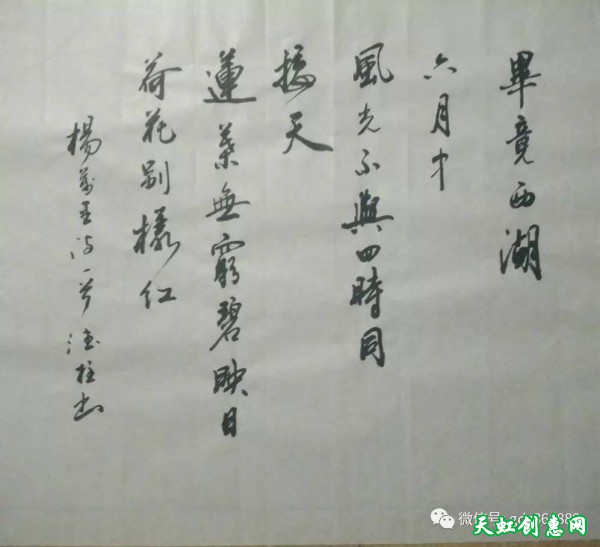 畢竟西湖
六月中
風光不與四時同
接天
蓮葉無窮碧映日
荷花别樣红
楊萬里诗一首 柱书
微信号:
天虹创惠网